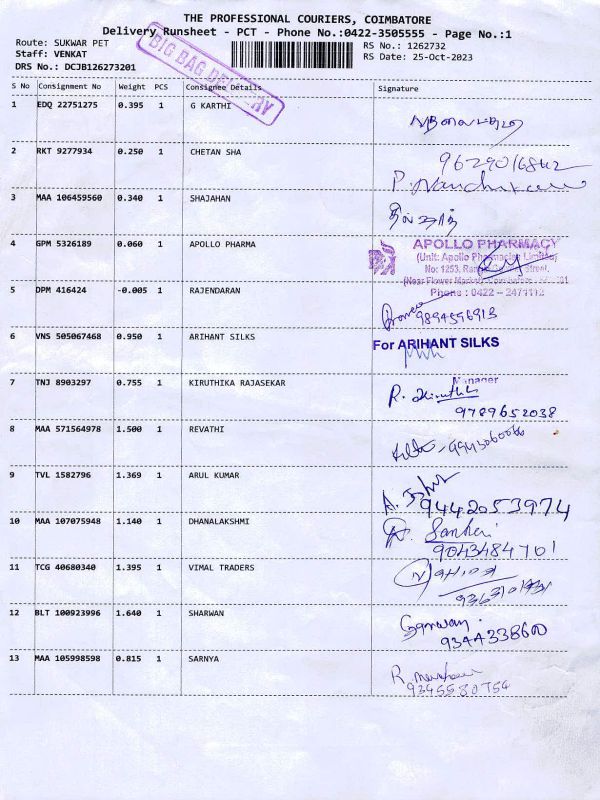 THE PROFESSIONAL COURIERS, COIMBATORE
Delivery Runsheet - PCT - Phone No.:0422-3505555 - Page No.:1
Route: SUKWAR PET
RS No.: 1262732
Staff: VENKAT
RS Date: 25-Oct-2023
DRS No.: DCJB126273201
BIG BAG DELIVERY
S No Consignment No Weight PCS Consignee Details Signature
1 EDQ 22751275 0.395 1 G KARTHI
2 RKT 9277934 0.250 1 CHETAN SHA
3 MAA 106459560 0.340 1 SHAJAHAN
4 GPM 5326189 0.060 1 APOLLO PHARMA
APOLLO PHARMACY
(Unit: Apollo Pharmacies Limited)
No: 1253, Street,
(Near Flower Market)
Phone : 0422 –
5 DPM 416424 -0.005 1 RAJENDARAN
9894596913
6 VNS 505067468 0.950 1 ARIHANT SILKS
For ARIHANT SILKS
Manager
7 TNJ 8903297 0.755 1 KIRUTHIKA RAJASEKAR
9789652038
8 MAA 571564978 1.500 1 REVATHI
9 TVL 1582796 1.369 1 ARUL KUMAR
9442053974
10 MAA 107075948 1.140 1 DHANALAKSHMI
9043484701
11 TCG 40680340 1.395 1 VIMAL TRADERS
12 BLT 100923996 1.640 1 SHARWAN
9344338600
13 MAA 105998598 0.815 1 SARNYA
9345580754